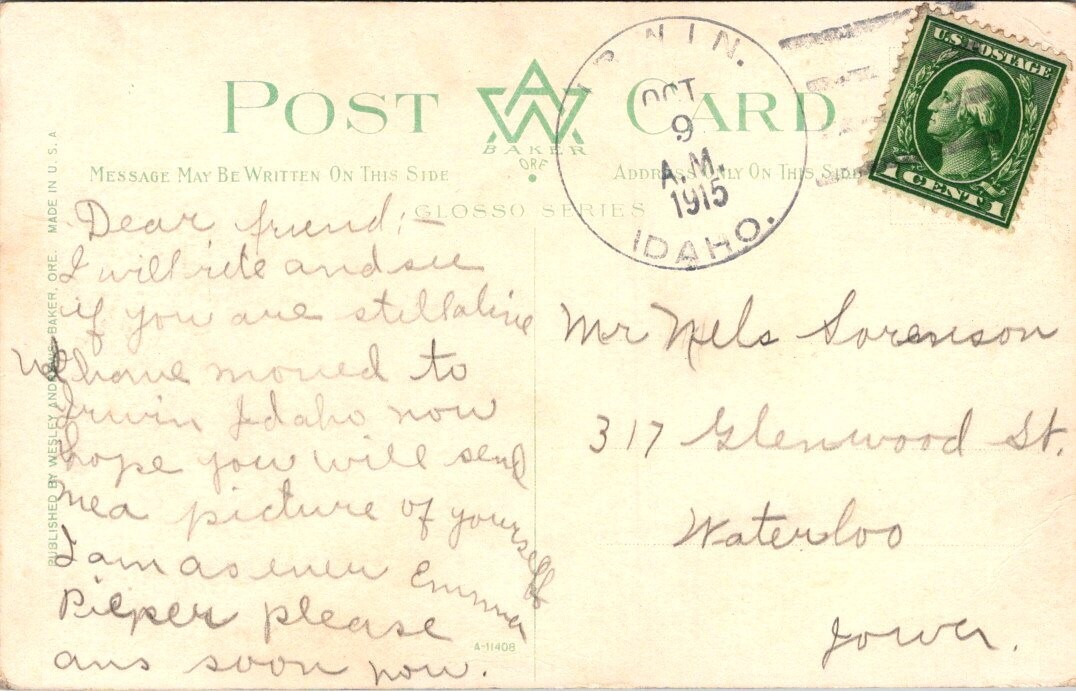 POST CARD
AW
BAKER
ORE
MESSAGE MAY BE WRITTEN ON THIS SIDE
ADDRESS ONLY ON THIS SIDE
GLOSSO SERIES
PUBLISHED BY WESLEY ANDREWS, BAKER, ORE. MADE IN U.S.A
IRWIN.
OCT
9
A.M.
1915
IDAHO.
U.S. POSTAGE
1 CENT 1
Dear friend;—
I will rite and see
if you are still alive
We have moved to
Irwin Idaho now
hope you will send
me a picture of yourself
I am as ever Emma
Pieper please
ans soon now.
A-11408
Mr Nels Sorenson
317 Glenwood St.
Waterloo
Iowa.